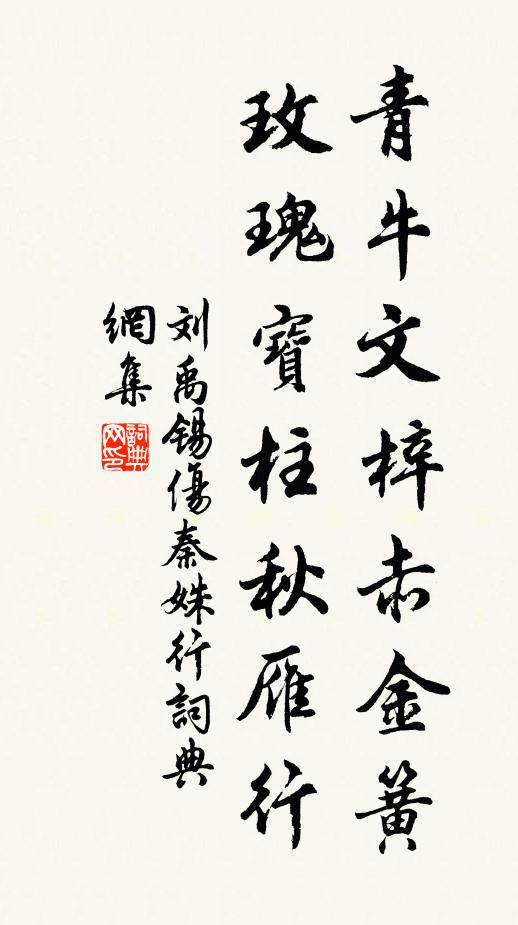 青牛文梓赤金簧
玫瑰寶柱秋雁行
刘禹锡傷秦姝行詞典
網集
詞典网印